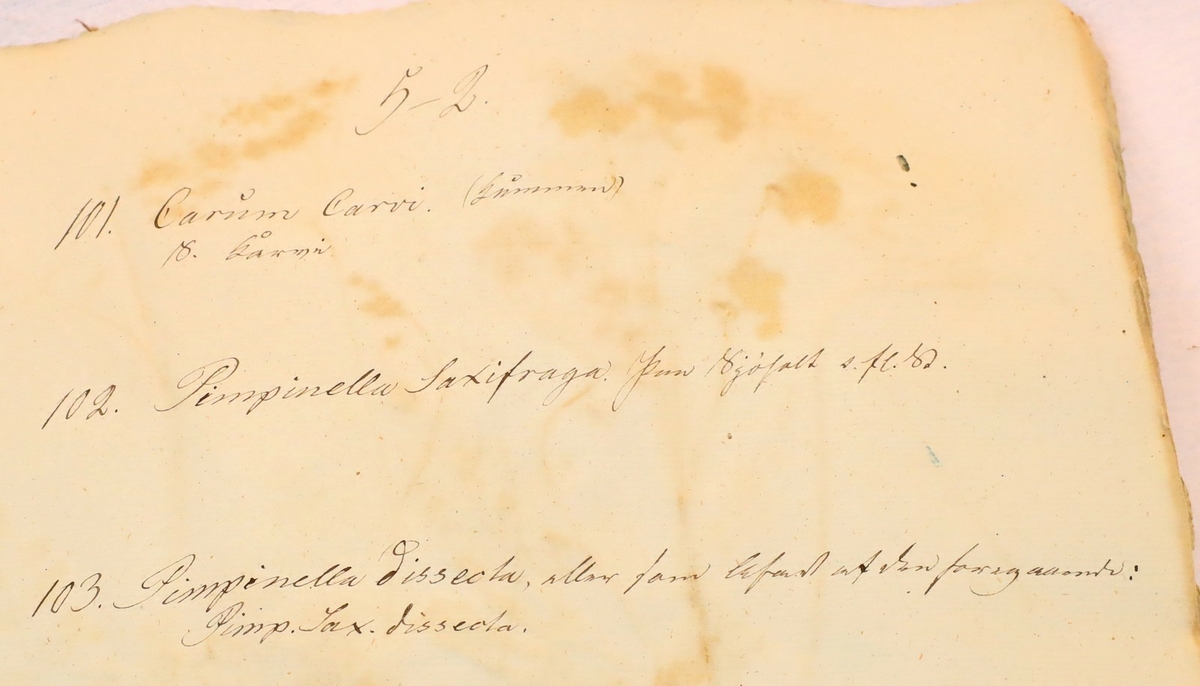 5-2.
101. Carum Carvi. (Kümmen)
N. Karvi
102. Pimpinella Saxifraga. Paa s. fl. St.
103. Pimpinella dissecta, eller som Afart af den foregaaende:
Pimp. Sax. dissecta.